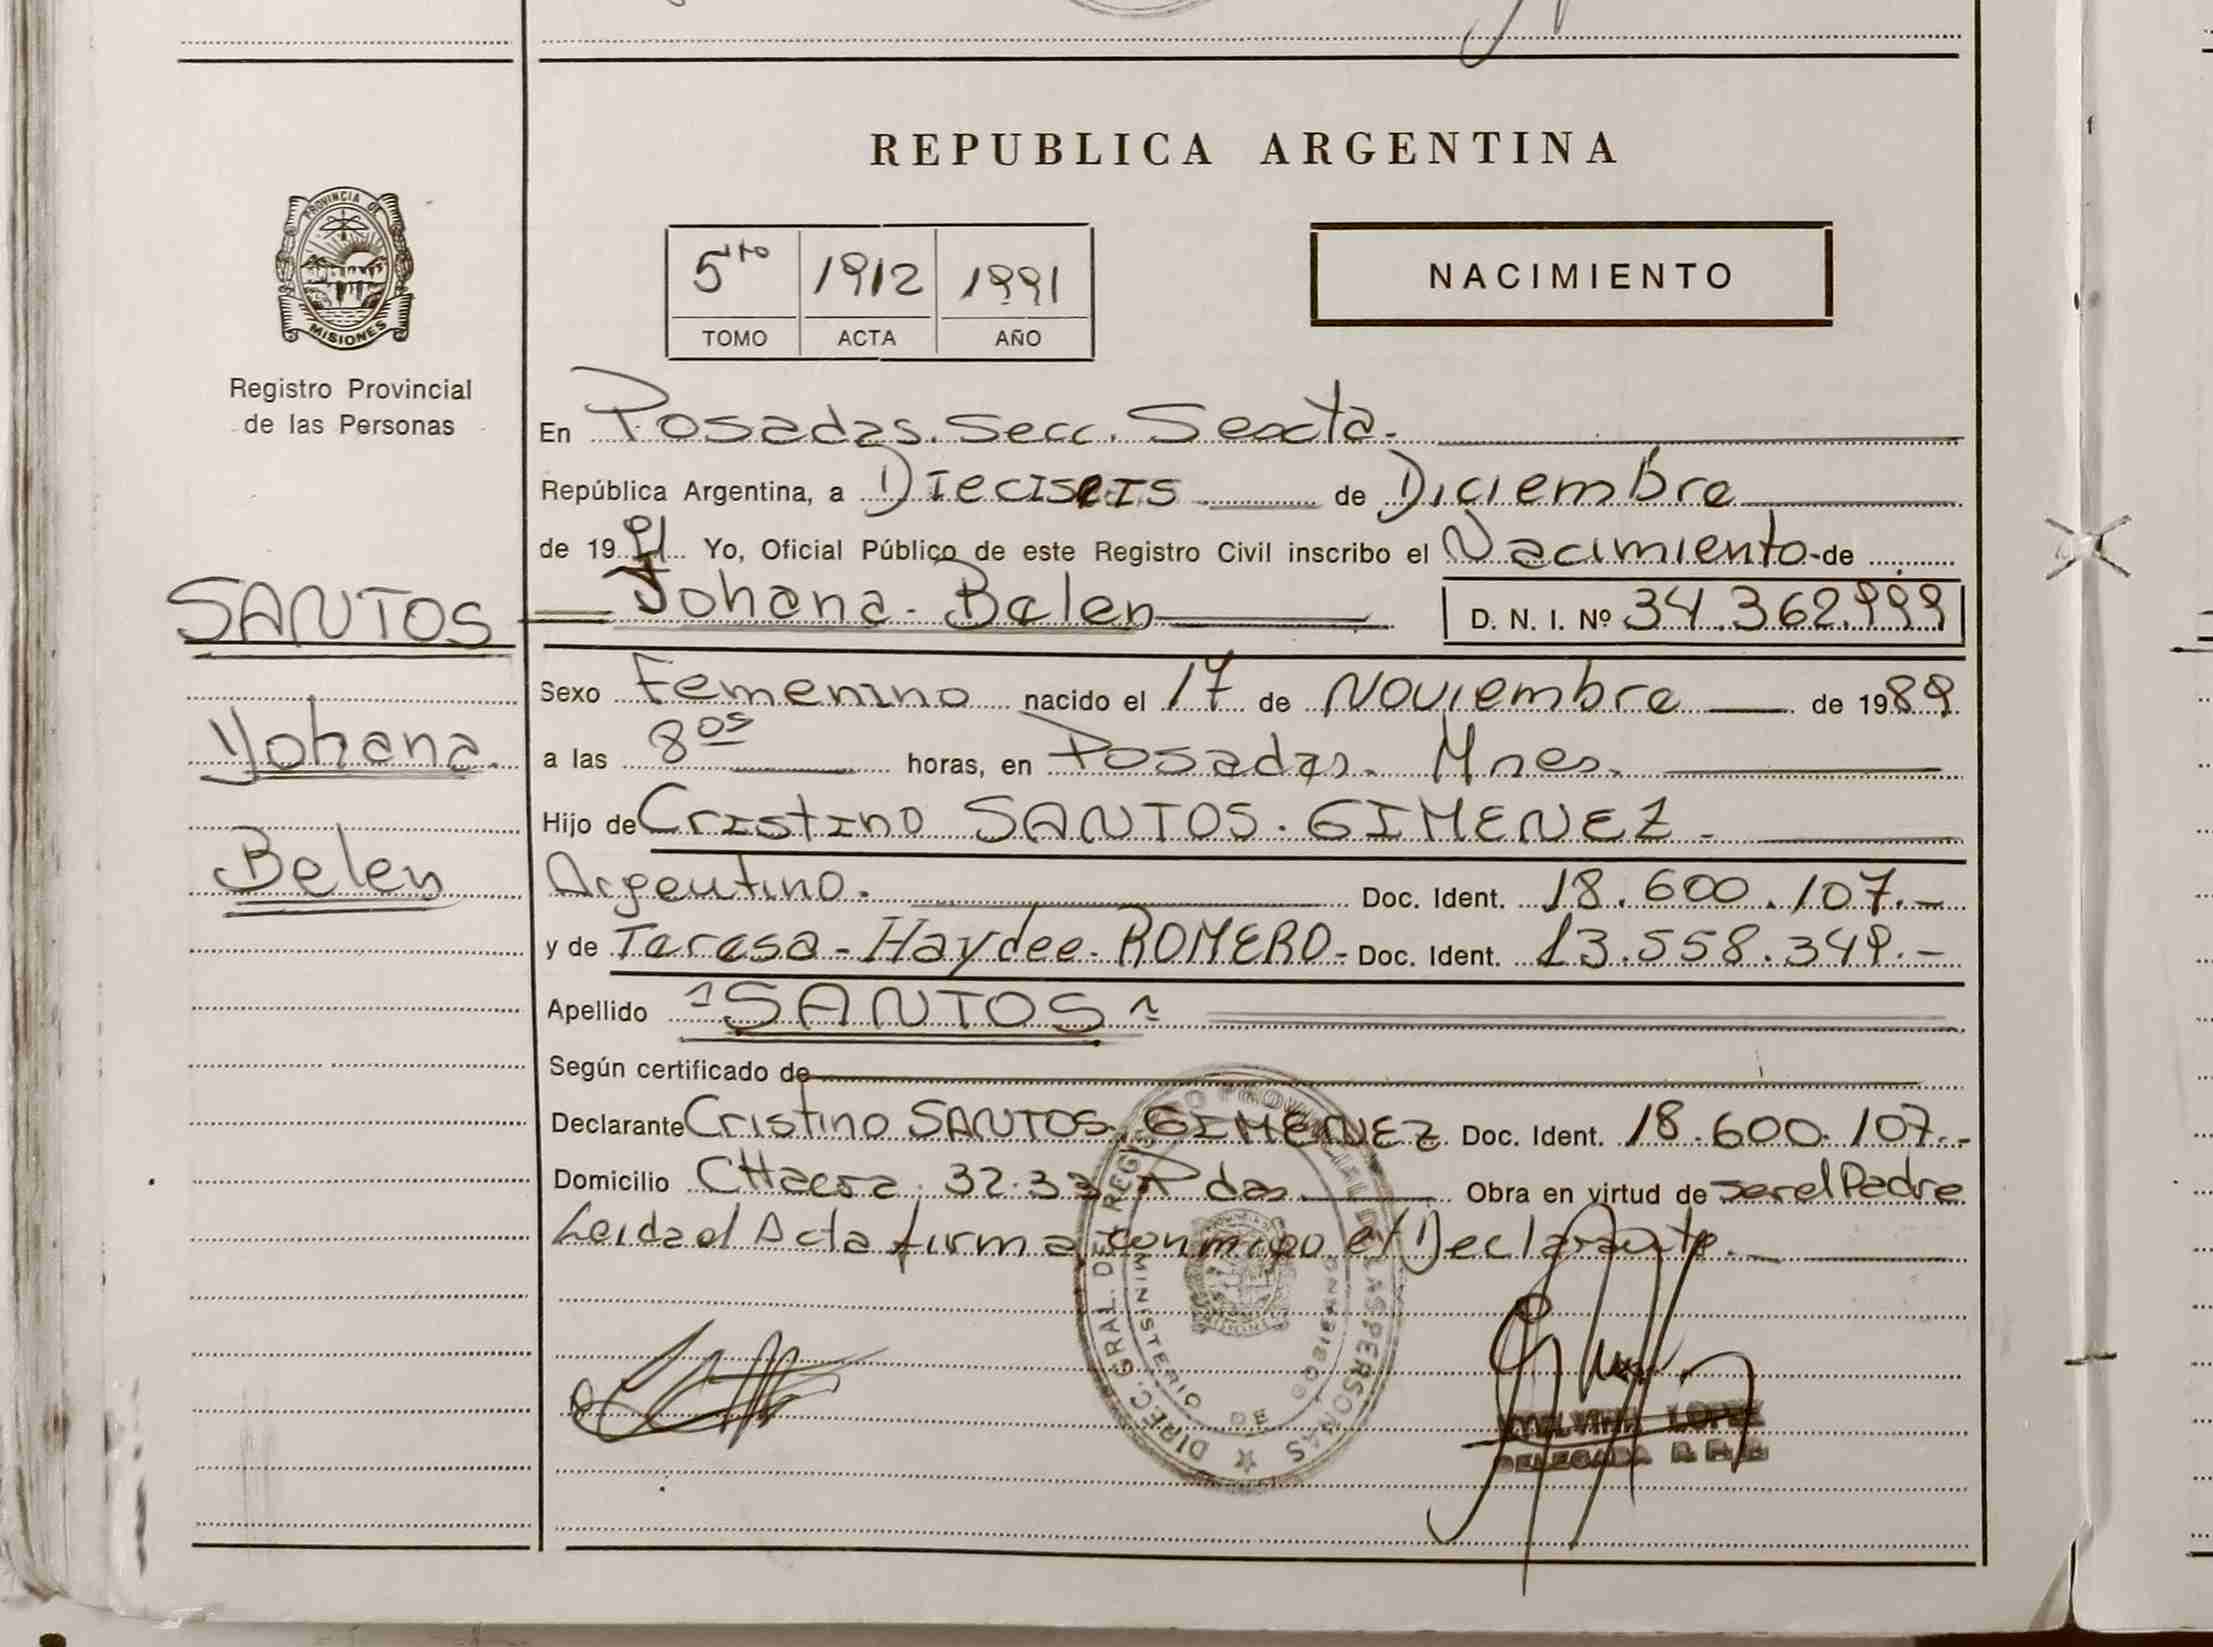 REPUBLICA ARGENTINA
PROVINCIA DE
MISIONES
Registro Provincial
de las Personas
5to 1912 1991
TOMO ACTA AÑO
NACIMIENTO
En Posadas. Secc. Sexta.
República Argentina, a Dieciseis de Diciembre
de 19 91 Yo, Oficial Público de este Registro Civil inscribo el Nacimiento de
SANTOS
Yohana
Belen
Johana - Belen D. N. I. Nº 34.362.999
Sexo Femenino nacido el 17 de Noviembre de 1989
a las 8 os horas, en Posadas. Mnes.
Hijo de Cristino SANTOS. GIMENEZ -
Argentino. Doc. Ident. 18.600.107.-
y de Teresa - Haydee - ROMERO - Doc. Ident. 13.558.349.-
Apellido SANTOS
Según certificado de
Declarante Cristino SANTOS. GIMENEZ Doc. Ident. 18.600.107.-
Domicilio CHacra. 32.33 Pdas. Obra en virtud de ser el Padre
Leida el Acta firma conmigo el Declarante.
DIREC. GRAL. DEL REGISTRO PROVINCIAL DE LAS PERSONAS
MINISTERIO DE GOBIERNO
LOPEZ
DELEGADA